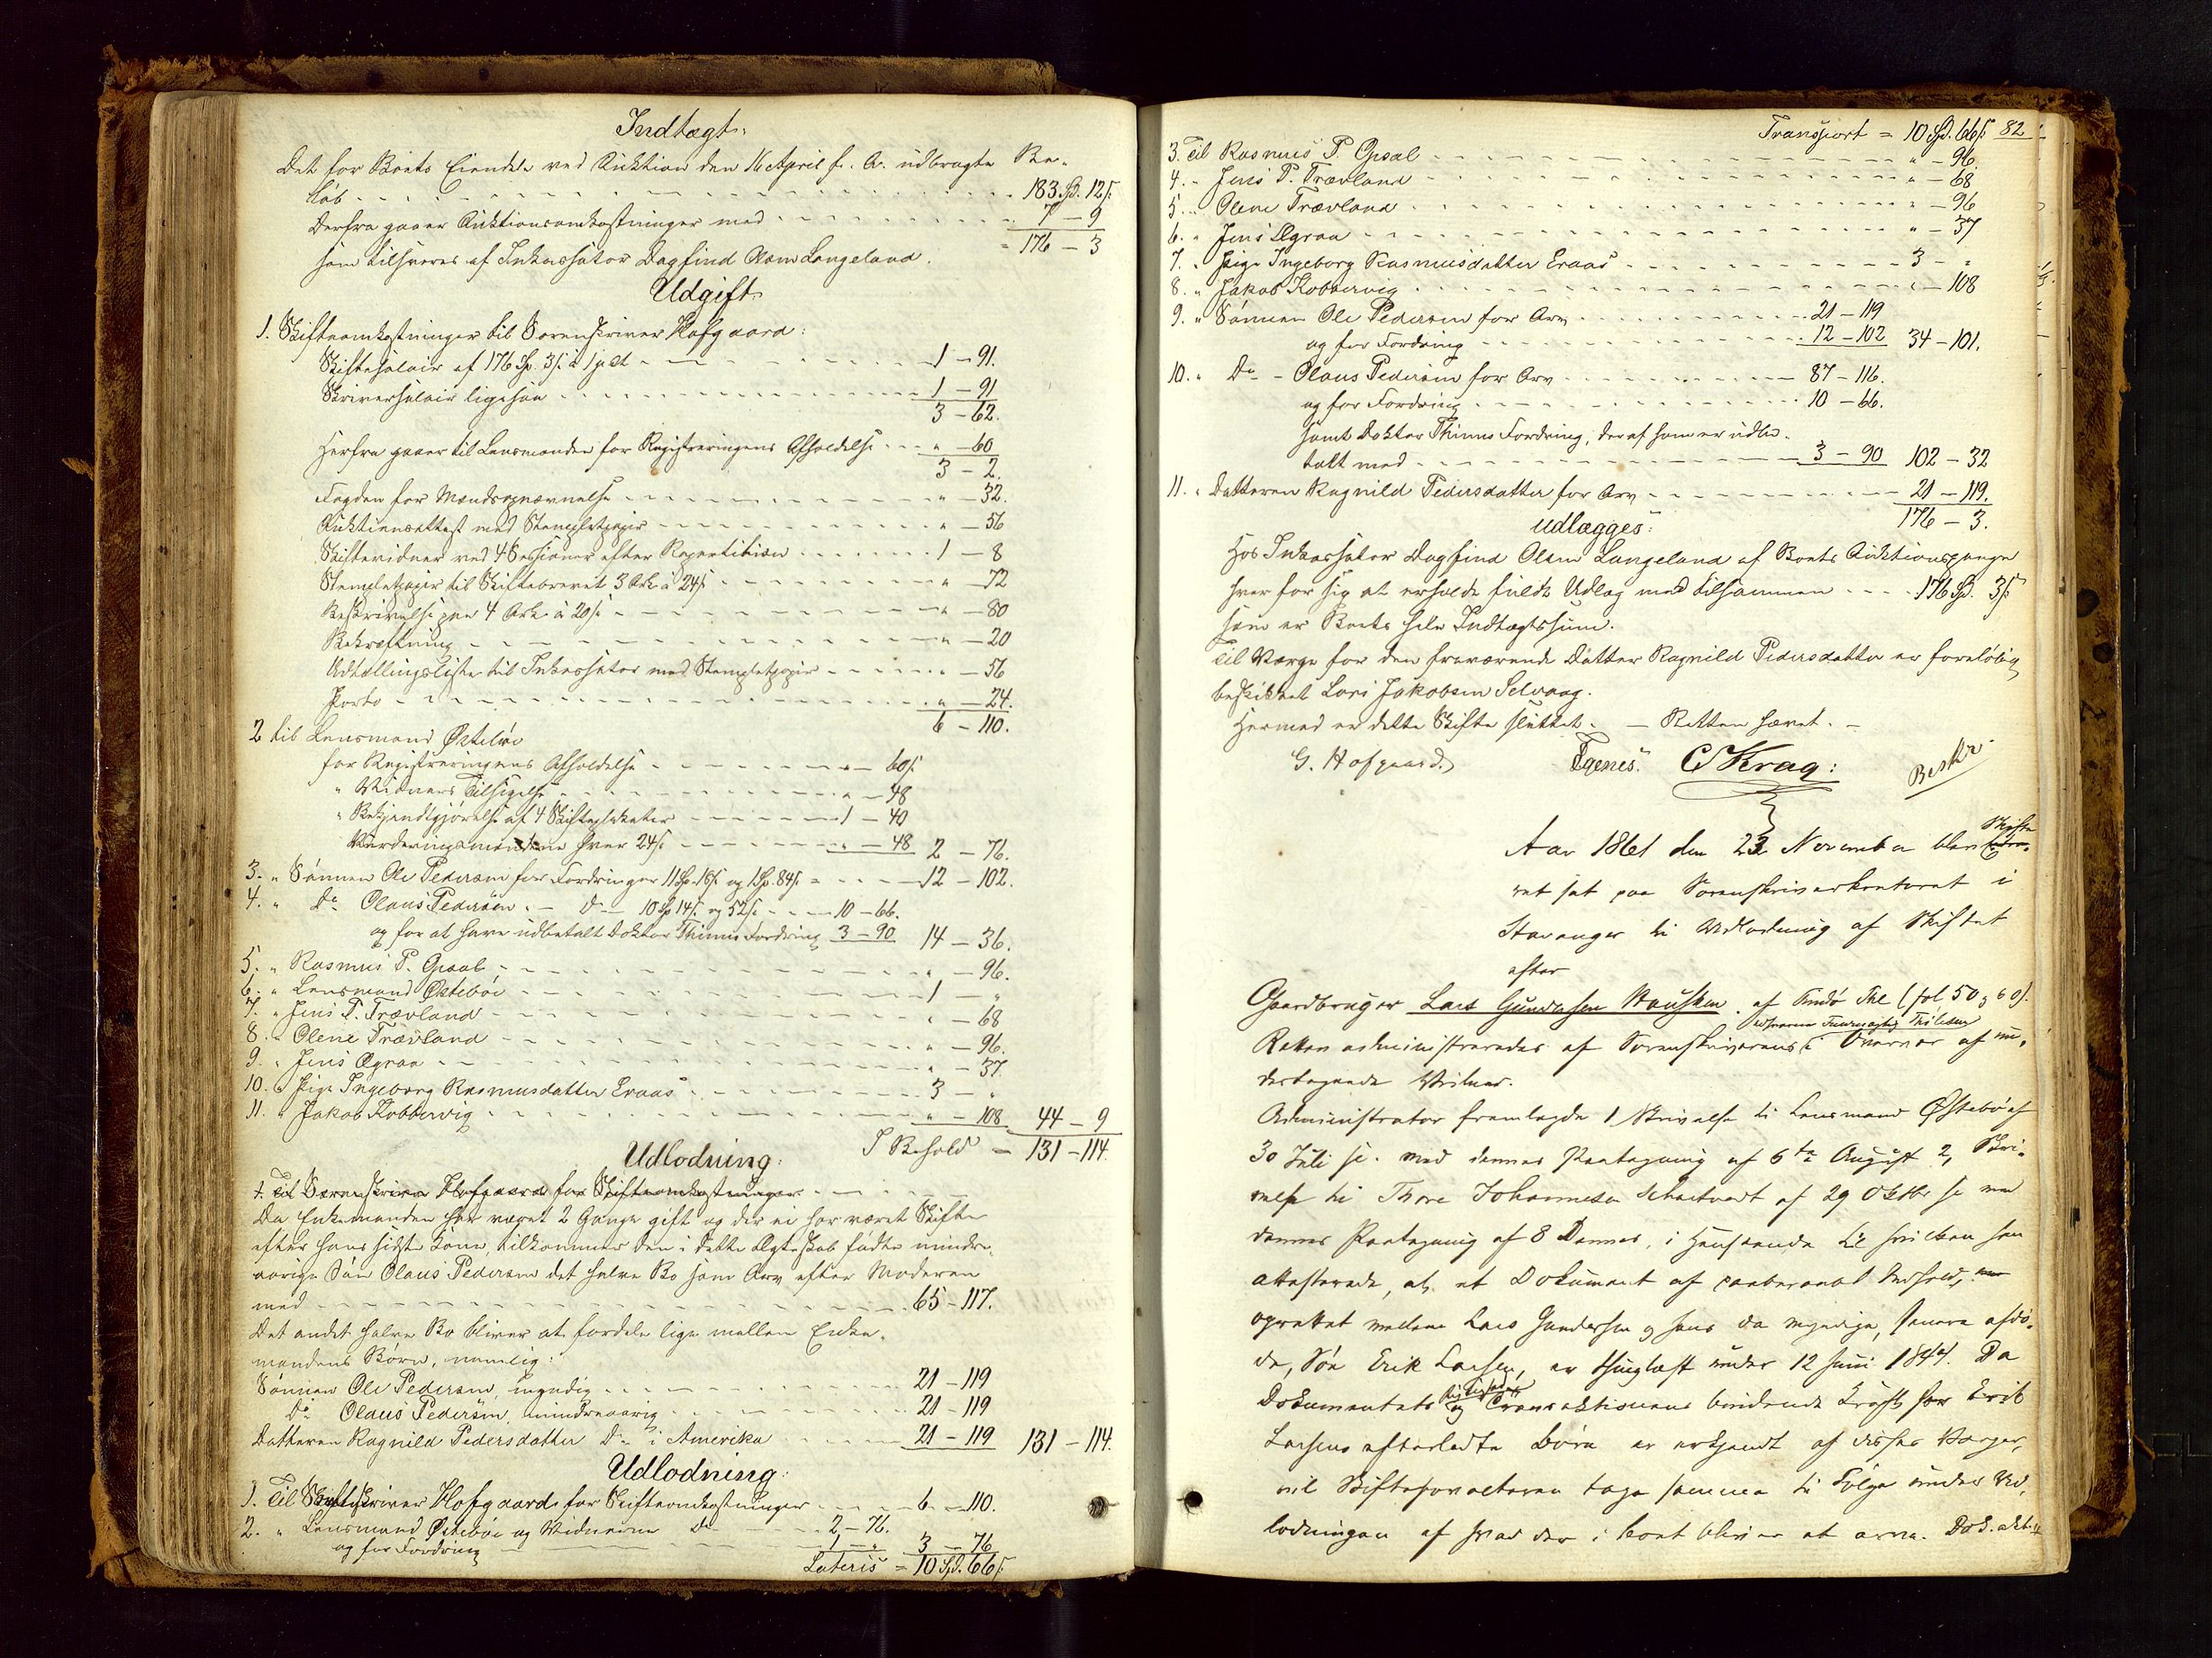 Indtægt:
Det for Boets Eiendele ved Auktion den 16 April f. A. udbragte Be-
løb - - - 183 Sp. 12 s.
Derfra gaaer Auktionsomkostninger med - - - 7 - 9
som tilsvares af Inkassator Dagfind Olsen Langeland. = 176 - 3
Udgift:
1. Skifteomkostninger til Sorenskriver Hofgaard:
Skiftesalair af 176 Sp. 3 s. à 1 pCt - - - 1 - 91.
Skriversalair ligesaa - - - 1 - 91
3 - 62.
Herfra gaaer til Lensmanden for Registreringens Afholdelse - - - " - 60
3 - 2.
Fogden for Mandsopnævnelse - - - " - 32.
Auktionsattest med Stempletpapir - - - " - 56
Skiftevidner ved 4 Sessioner efter Repartition - - - 1 - 8
Stempletpapir til Skiftebrevet 3 Ark à 24 s. - - - " - 72
Beskrivelse paa 4 Ark à 20 s. - - - " - 80
Bekræftning - - - " - 20
Udtællingsliste til Inkassator med Stempletpapir - - - " - 56
Porto - - - " - 24.
6 - 110.
2 til Lensmand Østebøe
for Registreringens Afholdelse - - - " - 60 s.
" Vidners Tilsigelse - - - " - 48
" Bekjendtgjørelse af 4 Skifteplakater - - - 1 - 40
Vurderingsmændene hver 24 s. - - - " - 48 2 - 76.
3. " Sønnen Ole Pedersen for Fordringer 11 Sp. 18 s. og 1 Sp. 84 s. - - - 12 - 102.
4. " Do Olaus Pedersen - Do - 10 Sp 14 s. og 52 s. - - - 10 - 66.
og for at have udbetalt Doktor Thimes Fordring 3 - 90 14 - 36.
5. " Rasmus P. Gpsal - - - " - 96.
6. " Lensmand Østebøe - - - 1 - "
7. " Jens P. Trævland - - - " - 68
8. " Olene Trævland - - - " - 96.
9. " Jens Øgraa - - - " - 37.
10. " Pige Ingeborg Rasmusdatter Eraas - - - 3 - "
11. " Jakob Kobbervig - - - " - 108 44 - 9
I Behold = 131 - 114.
Udlodning:
1. Til Sorenskriver Hofgaard for Skifteomkostninger - - -
Da Enkemanden har været 2 Gange gift og der ei har været Skifte
efter hans sidste Kone, tilkommer den i dette Ægteskab fødte mindre-
aarige Søn Olaus Pedersen det halve Bo som Arv efter Moderen
med - - - 65 - 117.
Det andet halve Bo bliver at fordele lige mellem Enke-
mandens Børn, nemlig:
Sønnen Ole Pedersen, myndig - - - 21 - 119
Do Olaus Pedersen, mindreaarig - - - 21 - 119
Datteren Ragnild Pedersdatter Do i Amerika - - - 21 - 119 131 - 114.
Udlodning:
1. Til Sorenskriver Hofgaard for Skifteomkostninger - - - 6 - 110.
2. " Lensmand Østebøe og Vidnerne Do - - - 2 - 76.
og for Fordring - - - 1 - " 3 - 76
Lateris = 10 Sp. 66 s.
Transport = 10 Sp. 66 s. 82
3. Til Rasmus P. Gpsal - - - " - 96.
4. " Jens P. Trævland - - - " - 68
5. " Olene Trævland - - - " - 96
6. " Jens Øgraa - - - " - 37
7. " Pige Ingeborg Rasmusdatter Eraas - - - 3 - "
8. " Jakob Kobbervig - - - " - 108
9. " Sønnen Ole Pedersen for Arv - - - 21 - 119
og for Fordring - - - 12 - 102 34 - 101.
10. " Do - Olaus Pedersen for Arv - - - 87 - 116.
og for Fordring - - - 10 - 66.
samt Doktor Thimes Fordring, der af ham er udbe-
talt med - - - 3 - 90 102 - 32
11. " Datteren Ragnild Pedersdatter for Arv - - - 21 - 119.
176 - 3.
Udlægges:
Hos Inkassator Dagfind Olsen Langeland af Boets Auktionspenge
hver for sig at erholde fuldt Udlag med tilsammen - - - 176 Sp. 3 s.
som er Boets hele Indtægtssum.
Til Værge for den fraværende Datter Ragnild Pedersdatter er foreløbig
beskikket Lars Jakobsen Selvaag.
Hermed er dette Skifte sluttet. - Retten hævet. -
G. Hofgaard Egenes. C Krag: Beskr
Aar 1861 den 23 November blev Skifte
ret sat paa Sorenskriverkontoret i
Stavanger til Udlodning af Skiftet
efter
Gaardbruger Lars Gundersen Hausken af Rendø Thl (fol 50 & 60).
Retten administreredes af Sorenskriverens i Overvær af un-
dertegnede Vidner.
Administrator fremlagde 1, Skrivelse til Lensmand Østebø af
30 Juli se. med dennes Paategning af 6te August 2, Skri-
velse til Thore Johannesen af 29 Oktbr se med
dennes Paategning af 8 Dennes, i Henseende til hvilken han
attesterede, at et Dokument af paaberaabt Indhold,
oprettet mellem Lars Gundersen og hans da myndige, senere afdø-
de, Søn Erik Larsen, er thinglæst under 12 Juni 1844. Da
Dokumentets Rigtighed og Transaktionens bindende Kraft for Erik
Larsens efterladte Børn er erkjendt af disses Værger,
vil Skifteforvalteren tage samme til Følge under Ud-
lodningen af hvad der i Boet bliver at arve. Dok.